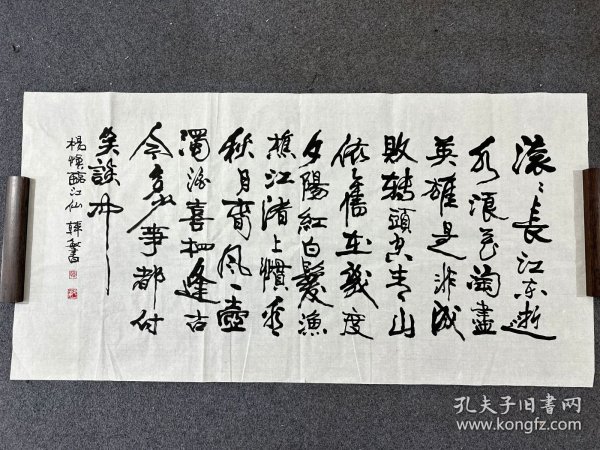 滚〻長江东逝
水浪花淘盡
英雄是非成
敗轉頭空青山
依舊在幾度
夕陽紅白髮漁
樵江渚上慣看
秋月春风一壺
濁酒喜相逢古
今多少事都付
笑談中
楊慎臨江仙 韓 書
孔夫子旧书网
www.kongfz.com